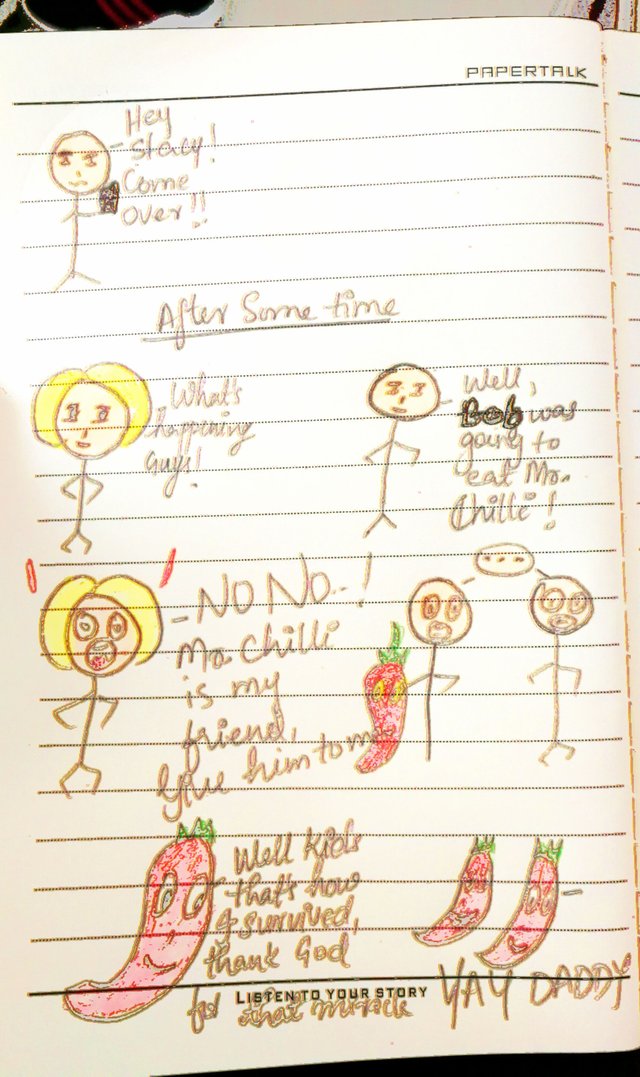 PAPERTALK
Hey
Stacy!
Come
over!!
After Some time
What's
happening
Guys!
Well,
Bob was
going to
eat Mr.
Chilli!
NO NO..!
Mr. Chilli
is my
friend,
Give him to me
...
Well Kids
that's how
I survived,
thank God
for that miracle
LISTEN TO YOUR STORY
YAY DADDY